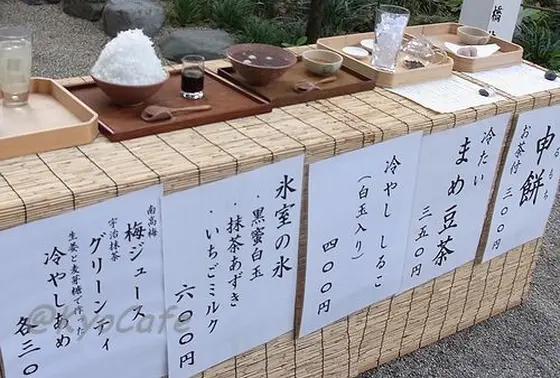 橋
申餅
お茶付 三〇〇円
冷たい
まめ豆茶
三五〇円
冷やし しるこ
(白玉入り)
四〇〇円
氷室の氷
・黒蜜白玉
・抹茶あずき
・いちごミルク
六〇〇円
南高梅
梅ジュース
宇治抹茶
グリーンティ
生姜と麦芽糖で作った
冷やしあめ
各三〇
@KyoCafe